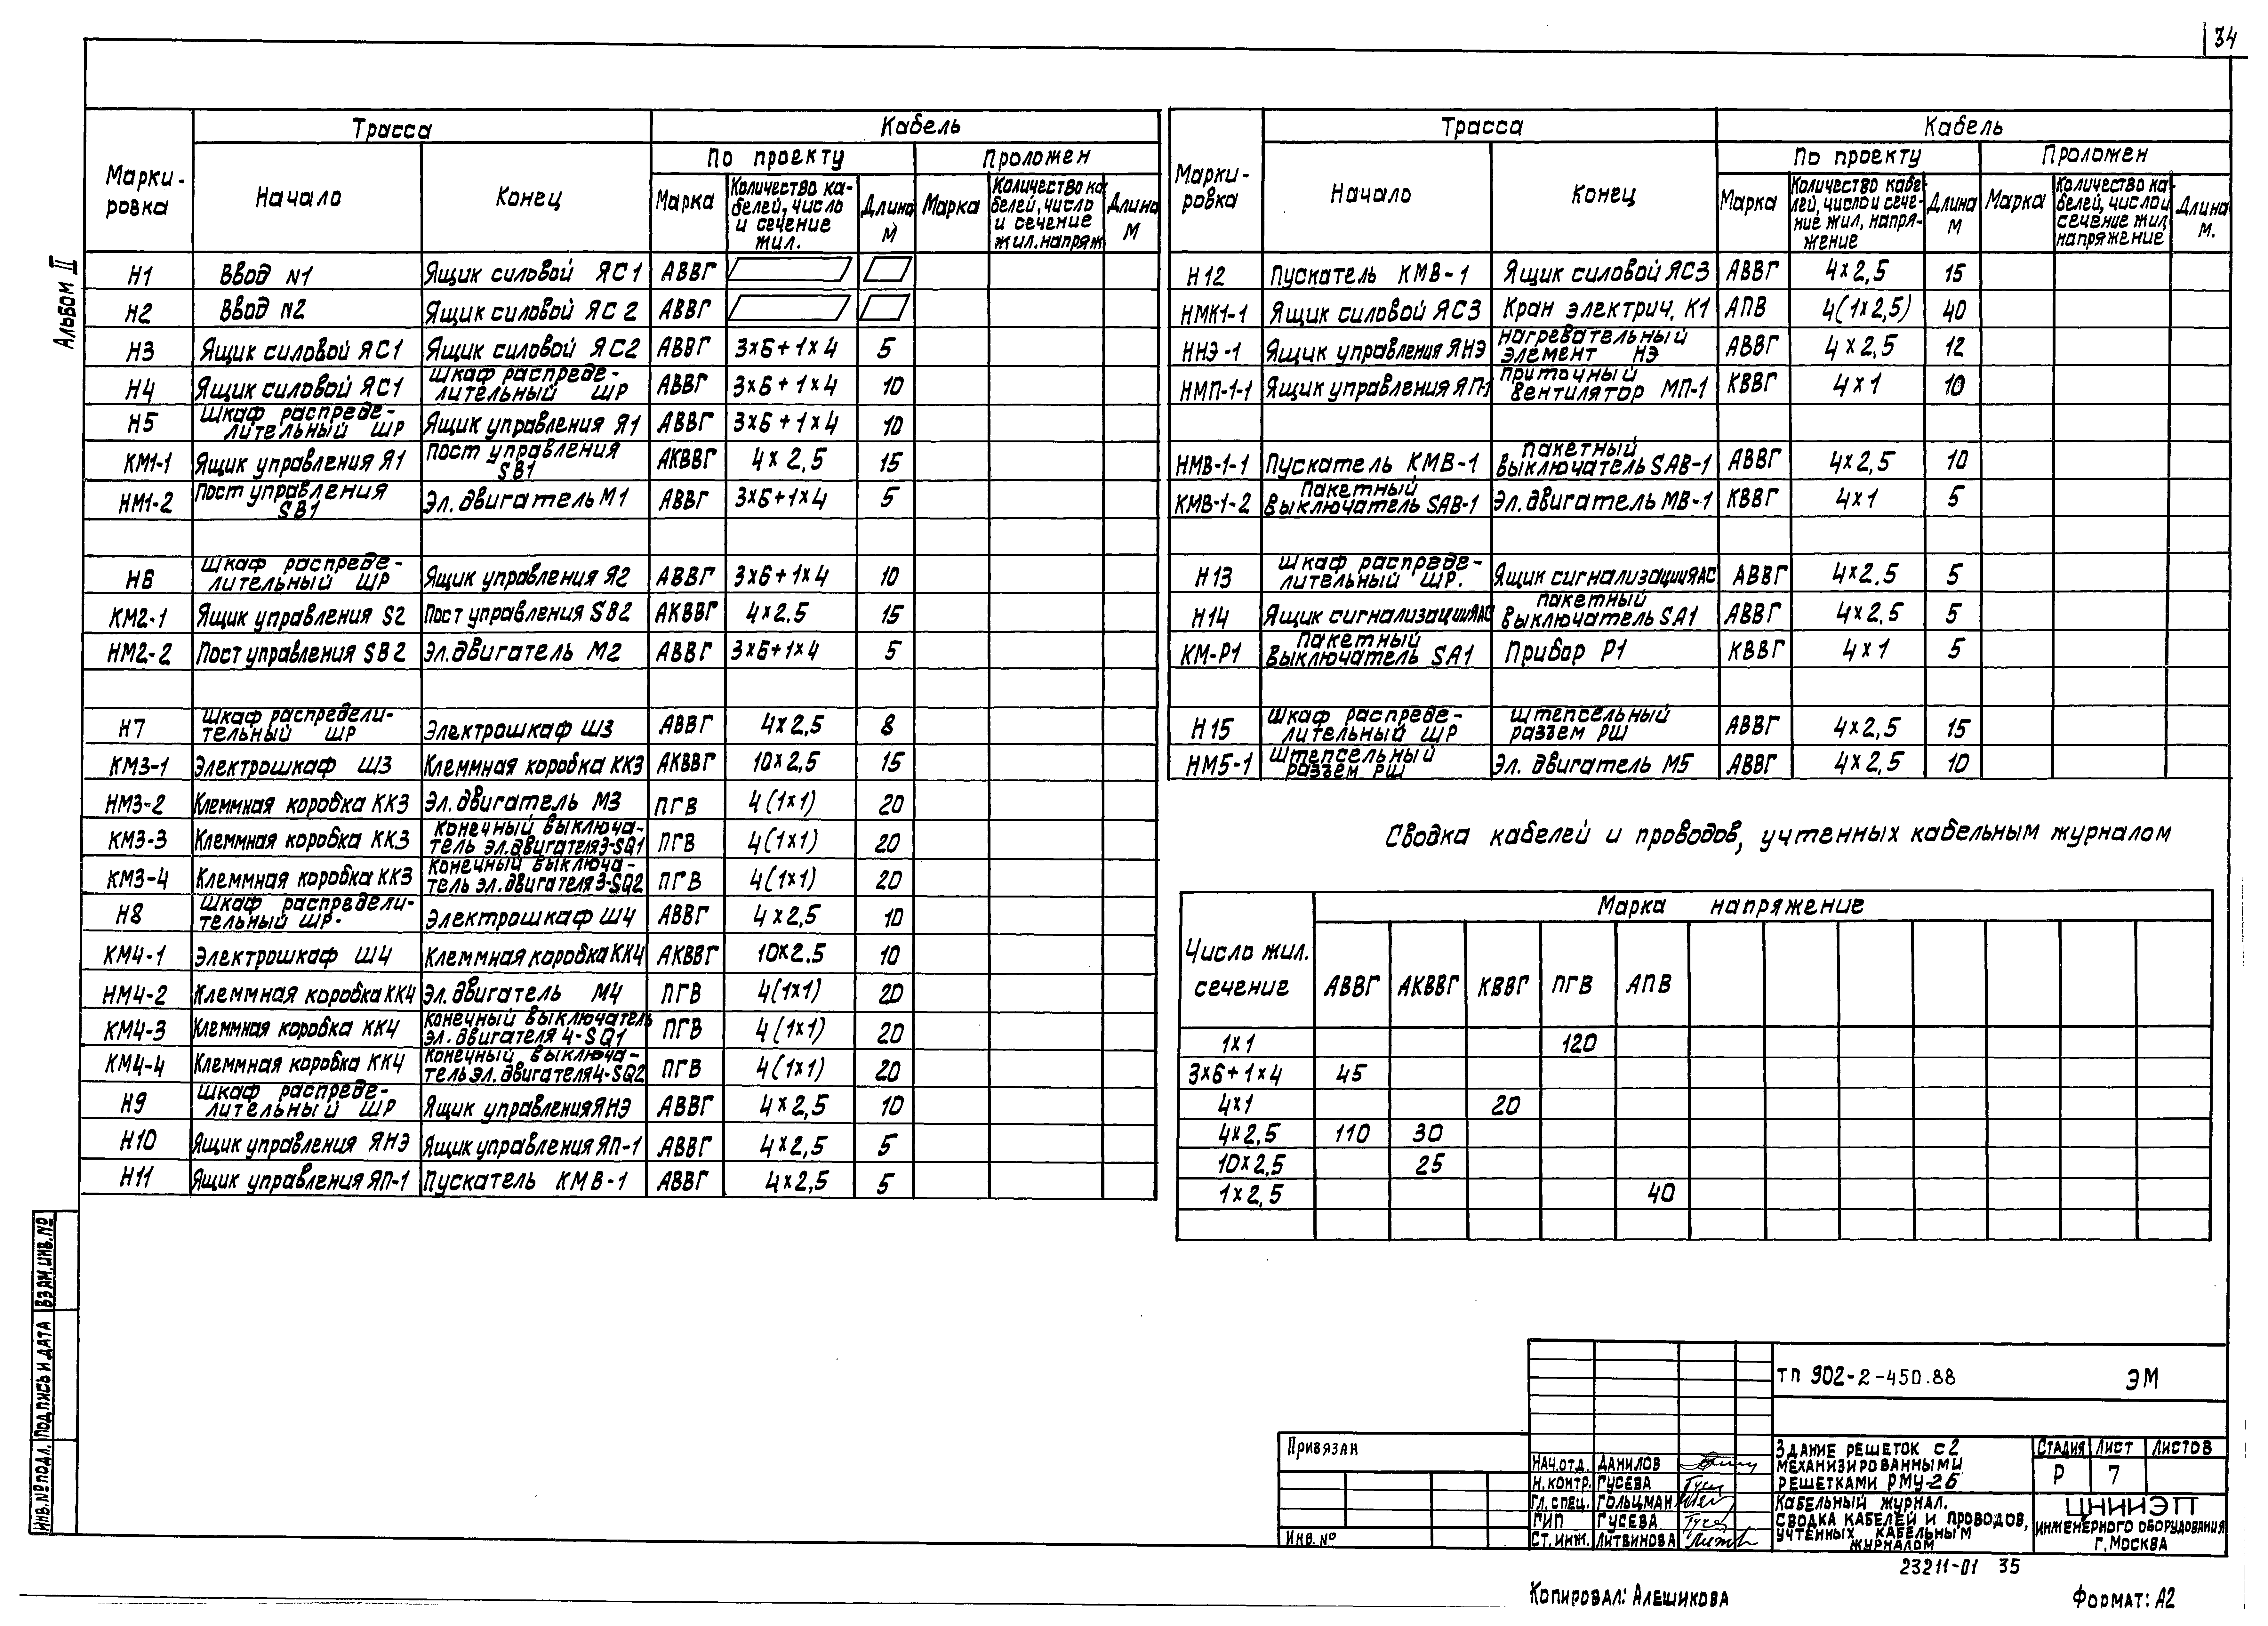 34
Альбом II
Марки-
ровка
Трасса
Кабель
Начало
Конец
По проекту
Проложен
Марка
Количество ка-
белей, число
и сечение
жил.
Длина
м
Марка
Количество ка
белей, число
и сечение
жил.напряж
Длина
м
Н1 Ввод N1 Ящик силовой ЯС1 АВВГ
Н2 Ввод N2 Ящик силовой ЯС2 АВВГ
Н3 Ящик силовой ЯС1 Ящик силовой ЯС2 АВВГ 3×6+1×4 5
Н4 Ящик силовой ЯС1 Шкаф распреде-
лительный ШР АВВГ 3×6+1×4 10
Н5 Шкаф распреде-
лительный ШР Ящик управления Я1 АВВГ 3×6+1×4 10
КМ1-1 Ящик управления Я1 Пост управления
SB1 АКВВГ 4×2,5 15
НМ1-2 Пост управления
SB1 Эл.двигатель М1 АВВГ 3×6+1×4 5
Н6 Шкаф распреде-
лительный ШР Ящик управления Я2 АВВГ 3×6+1×4 10
КМ2-1 Ящик управления S2 Пост управления SB2 АКВВГ 4×2.5 15
НМ2-2 Пост управления SB2 Эл.двигатель М2 АВВГ 3×6+1×4 5
Н7 Шкаф распредели-
тельный ШР Электрошкаф Ш3 АВВГ 4×2,5 8
КМ3-1 Электрошкаф Ш3 Клеммная коробка КК3 АКВВГ 10×2,5 15
НМ3-2 Клеммная коробка КК3 Эл.двигатель М3 ПГВ 4(1×1) 20
КМ3-3 Клеммная коробка КК3 Конечный выключа-
тель эл.двигателя3-SQ1 ПГВ 4(1×1) 20
КМ3-4 Клеммная коробка КК3 Конечный выключа-
тель эл.двигателя 3-SQ2 ПГВ 4(1×1) 20
Н8 Шкаф распредели-
тельный ШР. Электрошкаф Ш4 АВВГ 4×2,5 10
КМ4-1 Электрошкаф Ш4 Клеммная коробка КК4 АКВВГ 10×2.5 10
НМ4-2 Клеммная коробка КК4 Эл.двигатель М4 ПГВ 4(1×1) 20
КМ4-3 Клеммная коробка КК4 Конечный выключатель
эл.двигателя 4-SQ1 ПГВ 4(1×1) 20
КМ4-4 Клеммная коробка КК4 Конечный выключа-
тель эл.двигателя4-SQ2 ПГВ 4(1×1) 20
Н9 Шкаф распреде-
лительный ШР Ящик управления ЯНЭ АВВГ 4×2,5 10
Н10 Ящик управления ЯНЭ Ящик управления ЯП-1 АВВГ 4×2,5 5
Н11 Ящик управления ЯП-1 Пускатель КМВ-1 АВВГ 4×2,5 5
Марки-
ровка
Трасса
Кабель
Начало
Конец
По проекту
Проложен
Марка
Количество кабе-
лей, число и сече-
ние жил, напря-
жение
Длина
м
Марка
Количество ка-
белей, число и
сечение жил,
напряжение
Длина
м.
Н12 Пускатель КМВ-1 Ящик силовой ЯС3 АВВГ 4×2,5 15
НМК1-1 Ящик силовой ЯС3 Кран электрич. К1 АПВ 4(1×2,5) 40
ННЭ-1 Ящик управления ЯНЭ Нагревательный
элемент НЭ АВВГ 4×2,5 12
НМП-1-1 Ящик управления ЯП-1 Приточный
вентилятор МП-1 КВВГ 4×1 10
НМВ-1-1 Пускатель КМВ-1 Пакетный
выключатель SAB-1 АВВГ 4×2,5 10
КМВ-1-2 Пакетный
выключатель SAB-1 Эл.двигатель МВ-1 КВВГ 4×1 5
Н13 Шкаф распреде-
лительный ШР. Ящик сигнализации ЯАС АВВГ 4×2.5 5
Н14 Ящик сигнализации ЯАС Пакетный
выключатель SA1 АВВГ 4×2,5 5
КМ-Р1 Пакетный
выключатель SA1 Прибор Р1 КВВГ 4×1 5
Н15 Шкаф распреде-
лительный ШР Штепсельный
разъем РШ АВВГ 4×2,5 15
НМ5-1 Штепсельный
разъем РШ Эл. двигатель М5 АВВГ 4×2,5 10
Сводка кабелей и проводов, учтенных кабельным журналом
Число жил.
сечение
Марка напряжение
АВВГ АКВВГ КВВГ ПГВ АПВ
1×1 120
3×6+1×4 45
4×1 20
4×2,5 110 30
10×2,5 25
1×2,5 40
Взам.инв.№
Подпись и дата
Инв.№подл.
ТП 902-2-450.88 ЭМ
Привязан
Инв.№
Нач.отд. Данилов
Н.контр. Гусева
Гл.спец. Гольцман
ГИП Гусева
Ст.инж. Литвинова
Здание решеток с 2
механизированными
решетками РМУ-2Б
Стадия Лист Листов
Р 7
Кабельный журнал.
Сводка кабелей и проводов,
учтенных кабельным
журналом
ЦНИИЭП
инженерного оборудования
г.Москва
23211-01 35
Копировал: Алешикова
Формат: А2